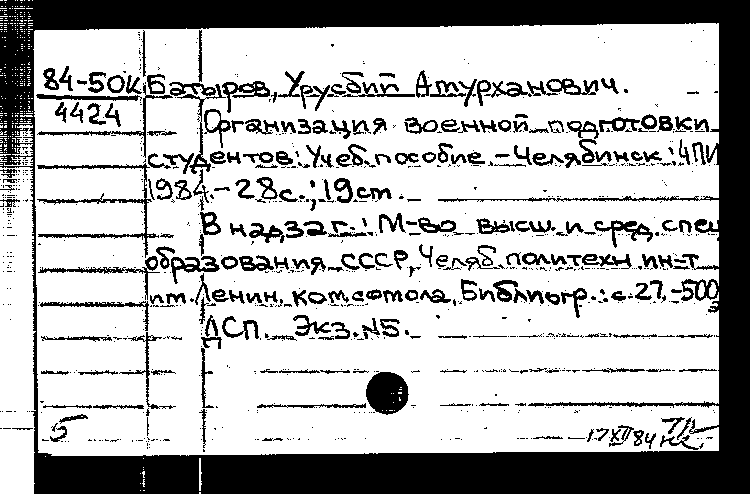 84-5ОК Батыров, Урусбий Атурханович.
4424 Организация военной подготовки
студентов: Учеб. пособие. - Челябинск: ЧПИ
1984. - 28 с.; 19 ст.
В надзаг.: М-во высш. и сред. спец
образования СССР, Челяб. политехн. ин-т
им. Ленин. комсомола, Библиогр.: с. 27. - 500
э
ДСП. Экз. №5.
5 17 XII 84